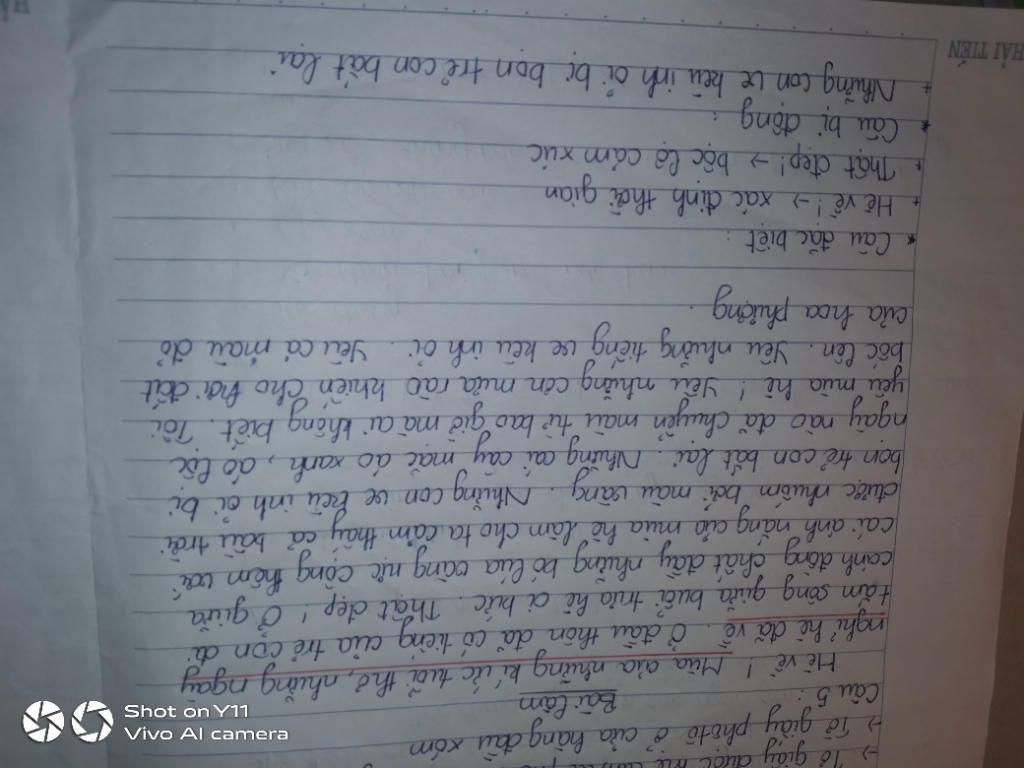 → Tờ giấy được
→ Tờ giấy phôtô ở cửa hàng đầu xóm
Câu 5 : Bài làm
Hè về ! Mùa của những kí ức tuổi thơ, những ngày
nghỉ hè đã về. Ở đầu thôn đã có tiếng của trẻ con đi
tắm sông giữa buổi trưa hè oi bức. Thật đẹp ! Ở giữa
cánh đồng chất đầy những bó lúa vàng ực cộng thêm với
cái ánh nắng của mùa hè làm cho ta cảm thấy cả bầu trời
được nhuốm bởi màu vàng. Những con ve kêu inh ỏi bị
bọn trẻ con bắt lại. Những cái cây mặc áo xanh, áo lộc
ngày nào đã chuyển màu từ bao giờ mà ai không biết. Tôi
yêu mùa hè ! Yêu những cơn mưa rào khiến cho hơi đất
bốc lên. Yêu những tiếng ve kêu inh ỏi. Yêu cả màu đỏ
của hoa phượng.
* Câu đặc biệt :
+ Hè về ! → xác định thời gian
+ Thật đẹp ! → bộc lộ cảm xúc
* Câu bị động :
+ Những con ve kêu inh ỏi bị bọn trẻ con bắt lại
HẢI TIẾN
Shot on Y11
Vivo AI camera